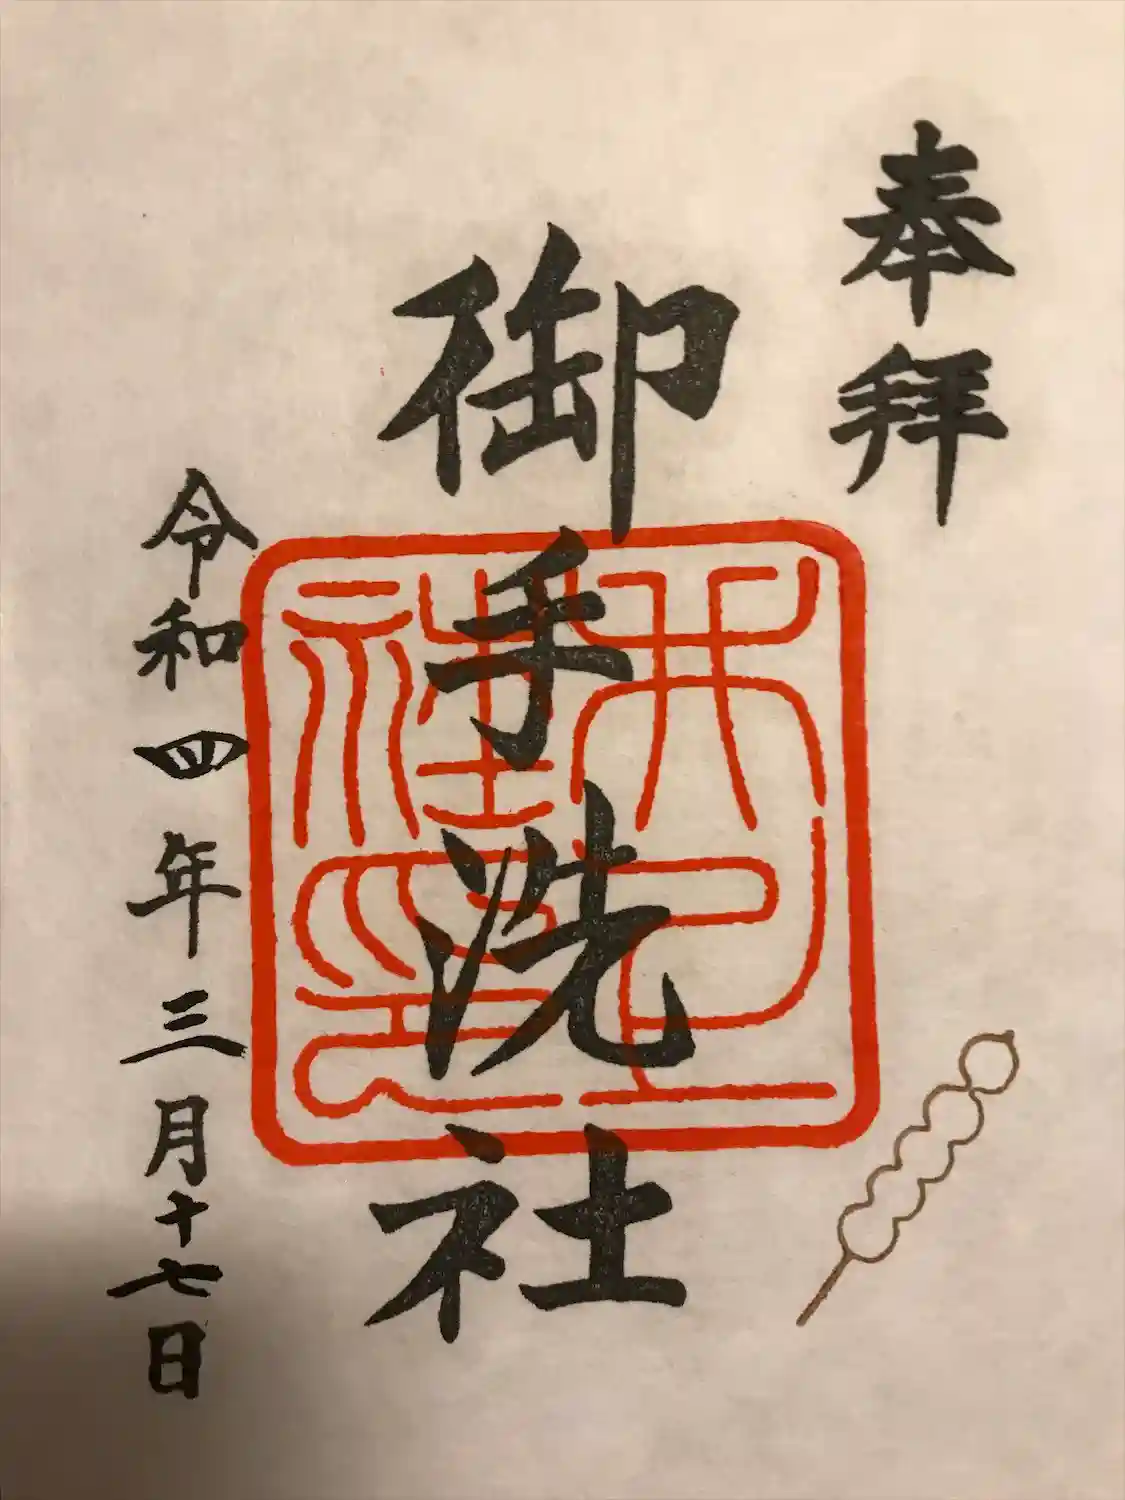 奉拝
御手洗社
令和四年三月十七日